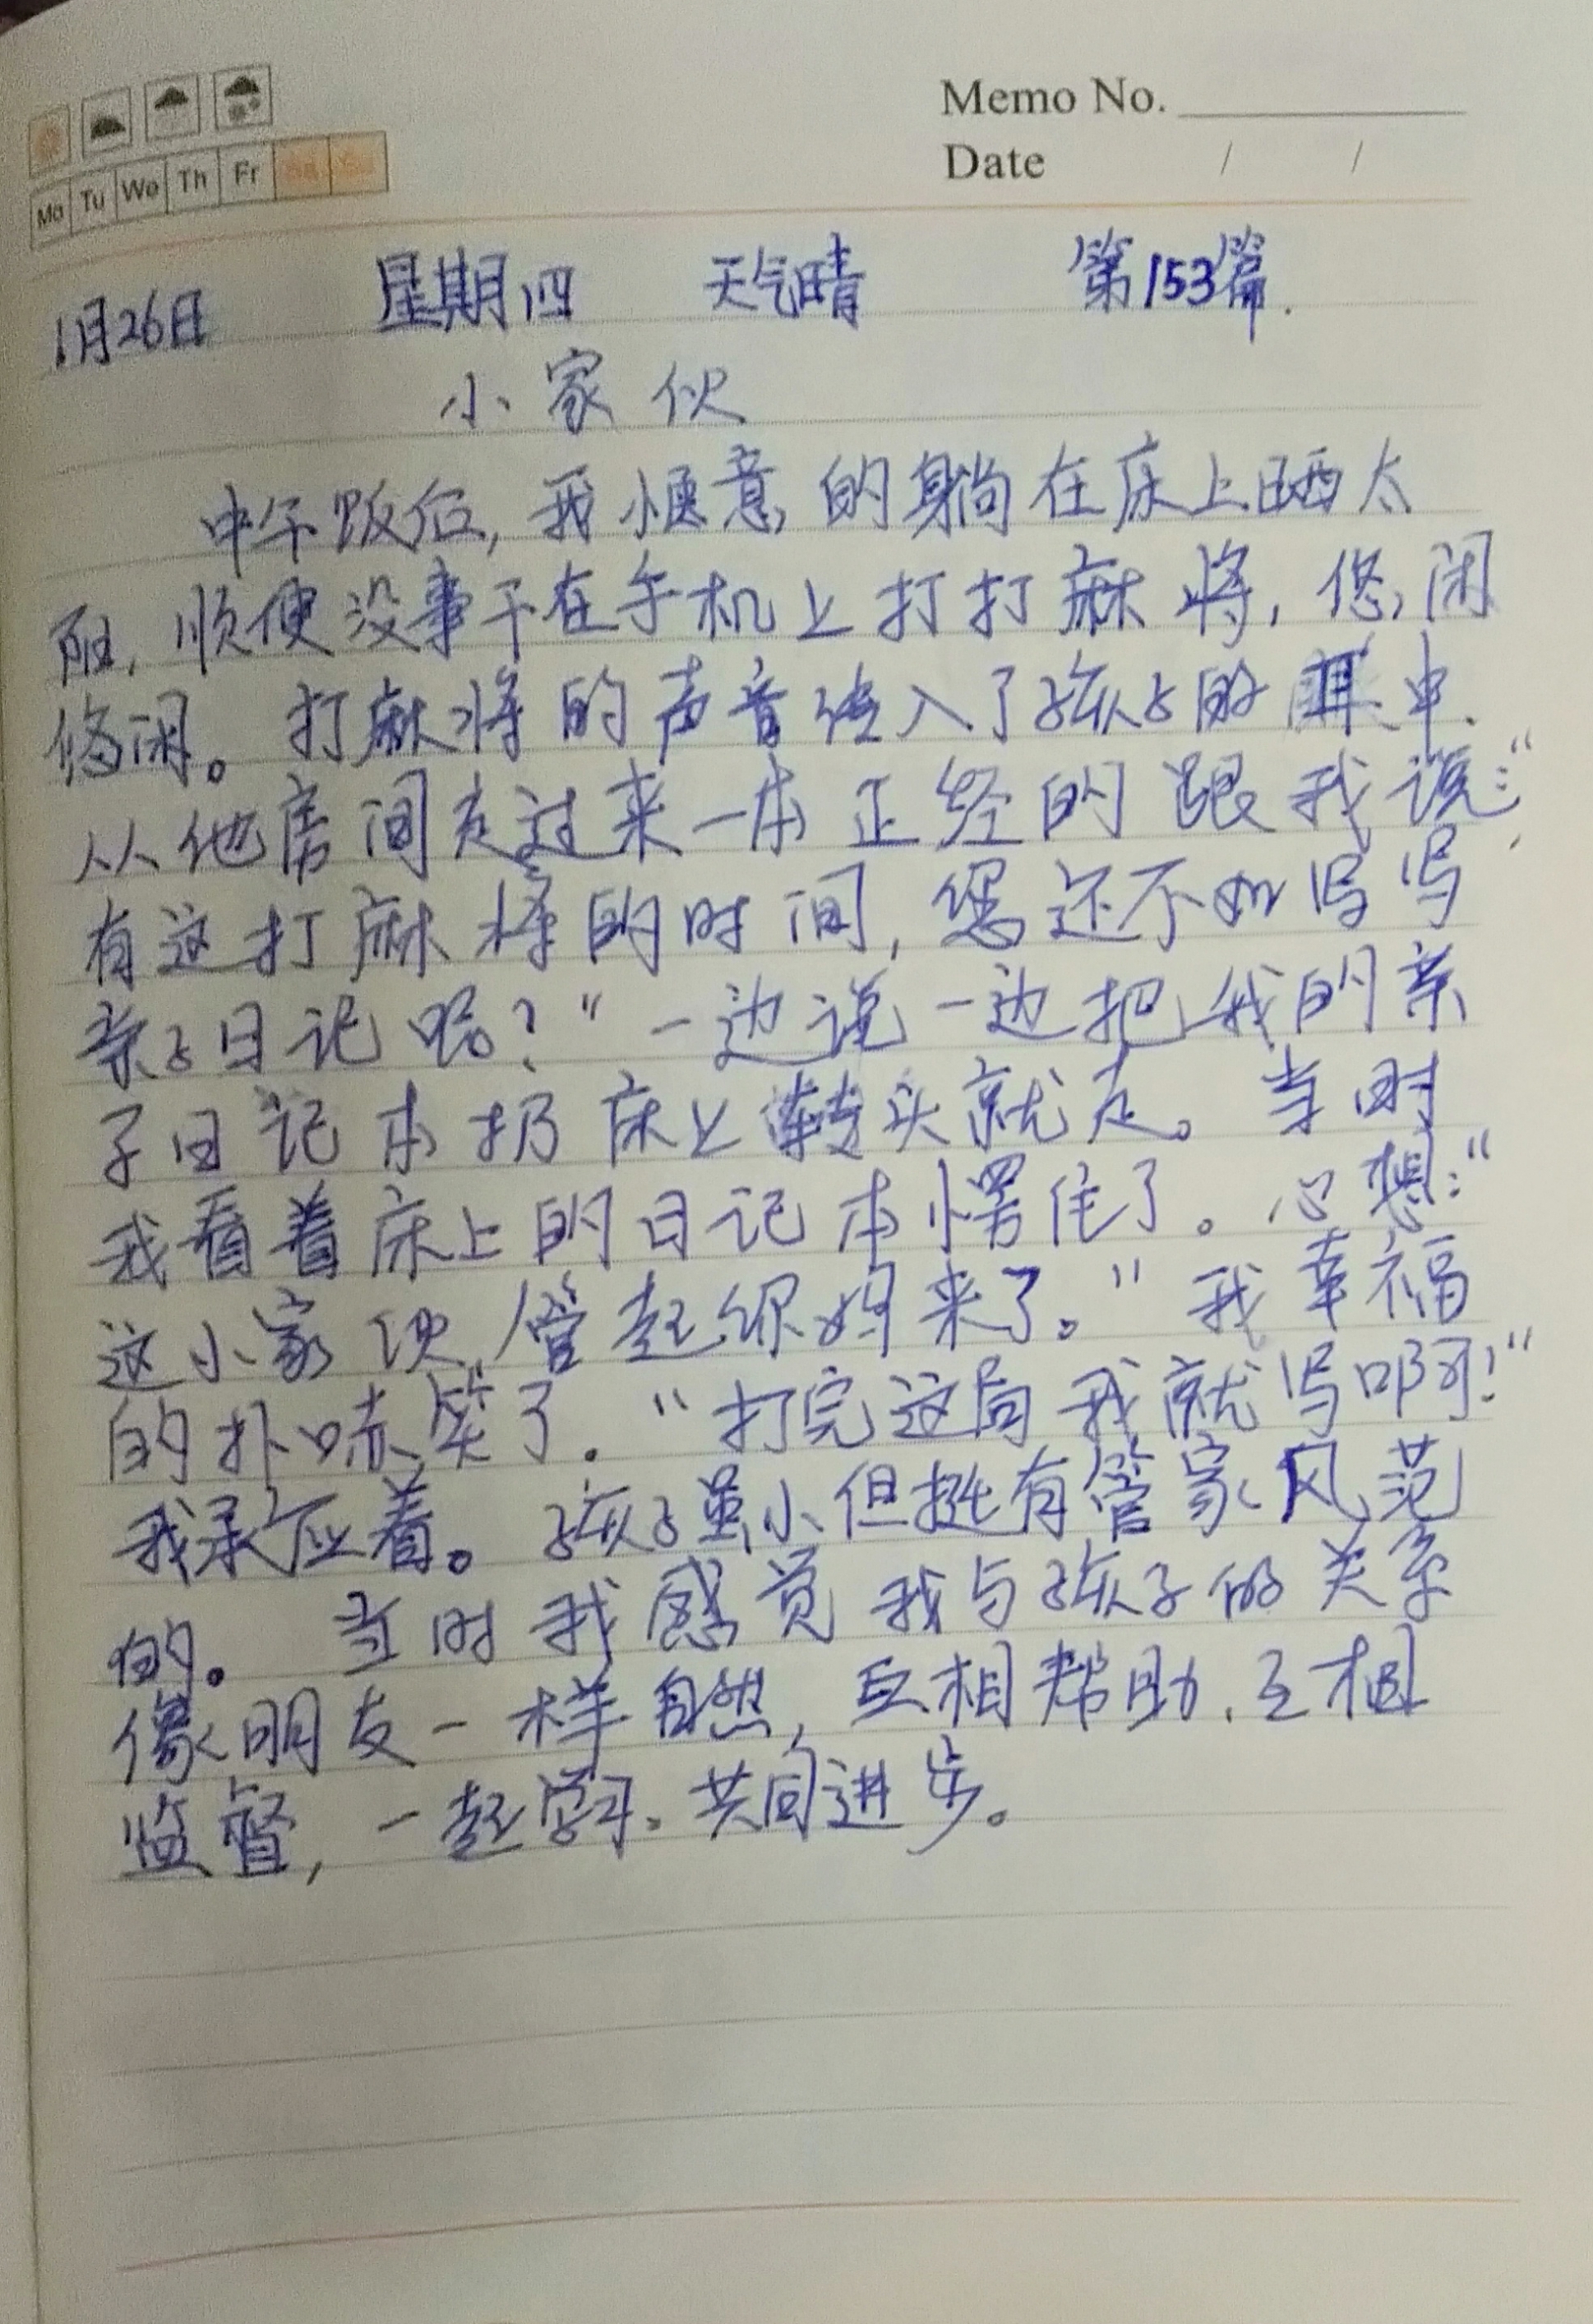 Memo No.
Mo Tu We Th Fr Sa Su
Date / /
1月26日 星期四 天气晴 第153篇.
小家伙
中午饭后,我惬意的躺在床上晒太
阳,顺便没事干在手机上打打麻将,悠闲
悠闲。打麻将的声音传入了孩子的耳中.
从他房间走过来一本正经的跟我说:“
有这打麻将的时间,您还不如写写
亲子日记呢?”一边说一边把我的亲
子日记本扔床上转头就走。当时
我看着床上的日记本愣住了。心想:“
这小家伙管起你妈来了。”我幸福
的扑哧笑了.“打完这局我就写啊!”
我承应着。孩子虽小但挺有管家风范
的。当时我感觉我与孩子的关系
像朋友一样自然,互相帮助.互相
监督,一起学习.共同进步。